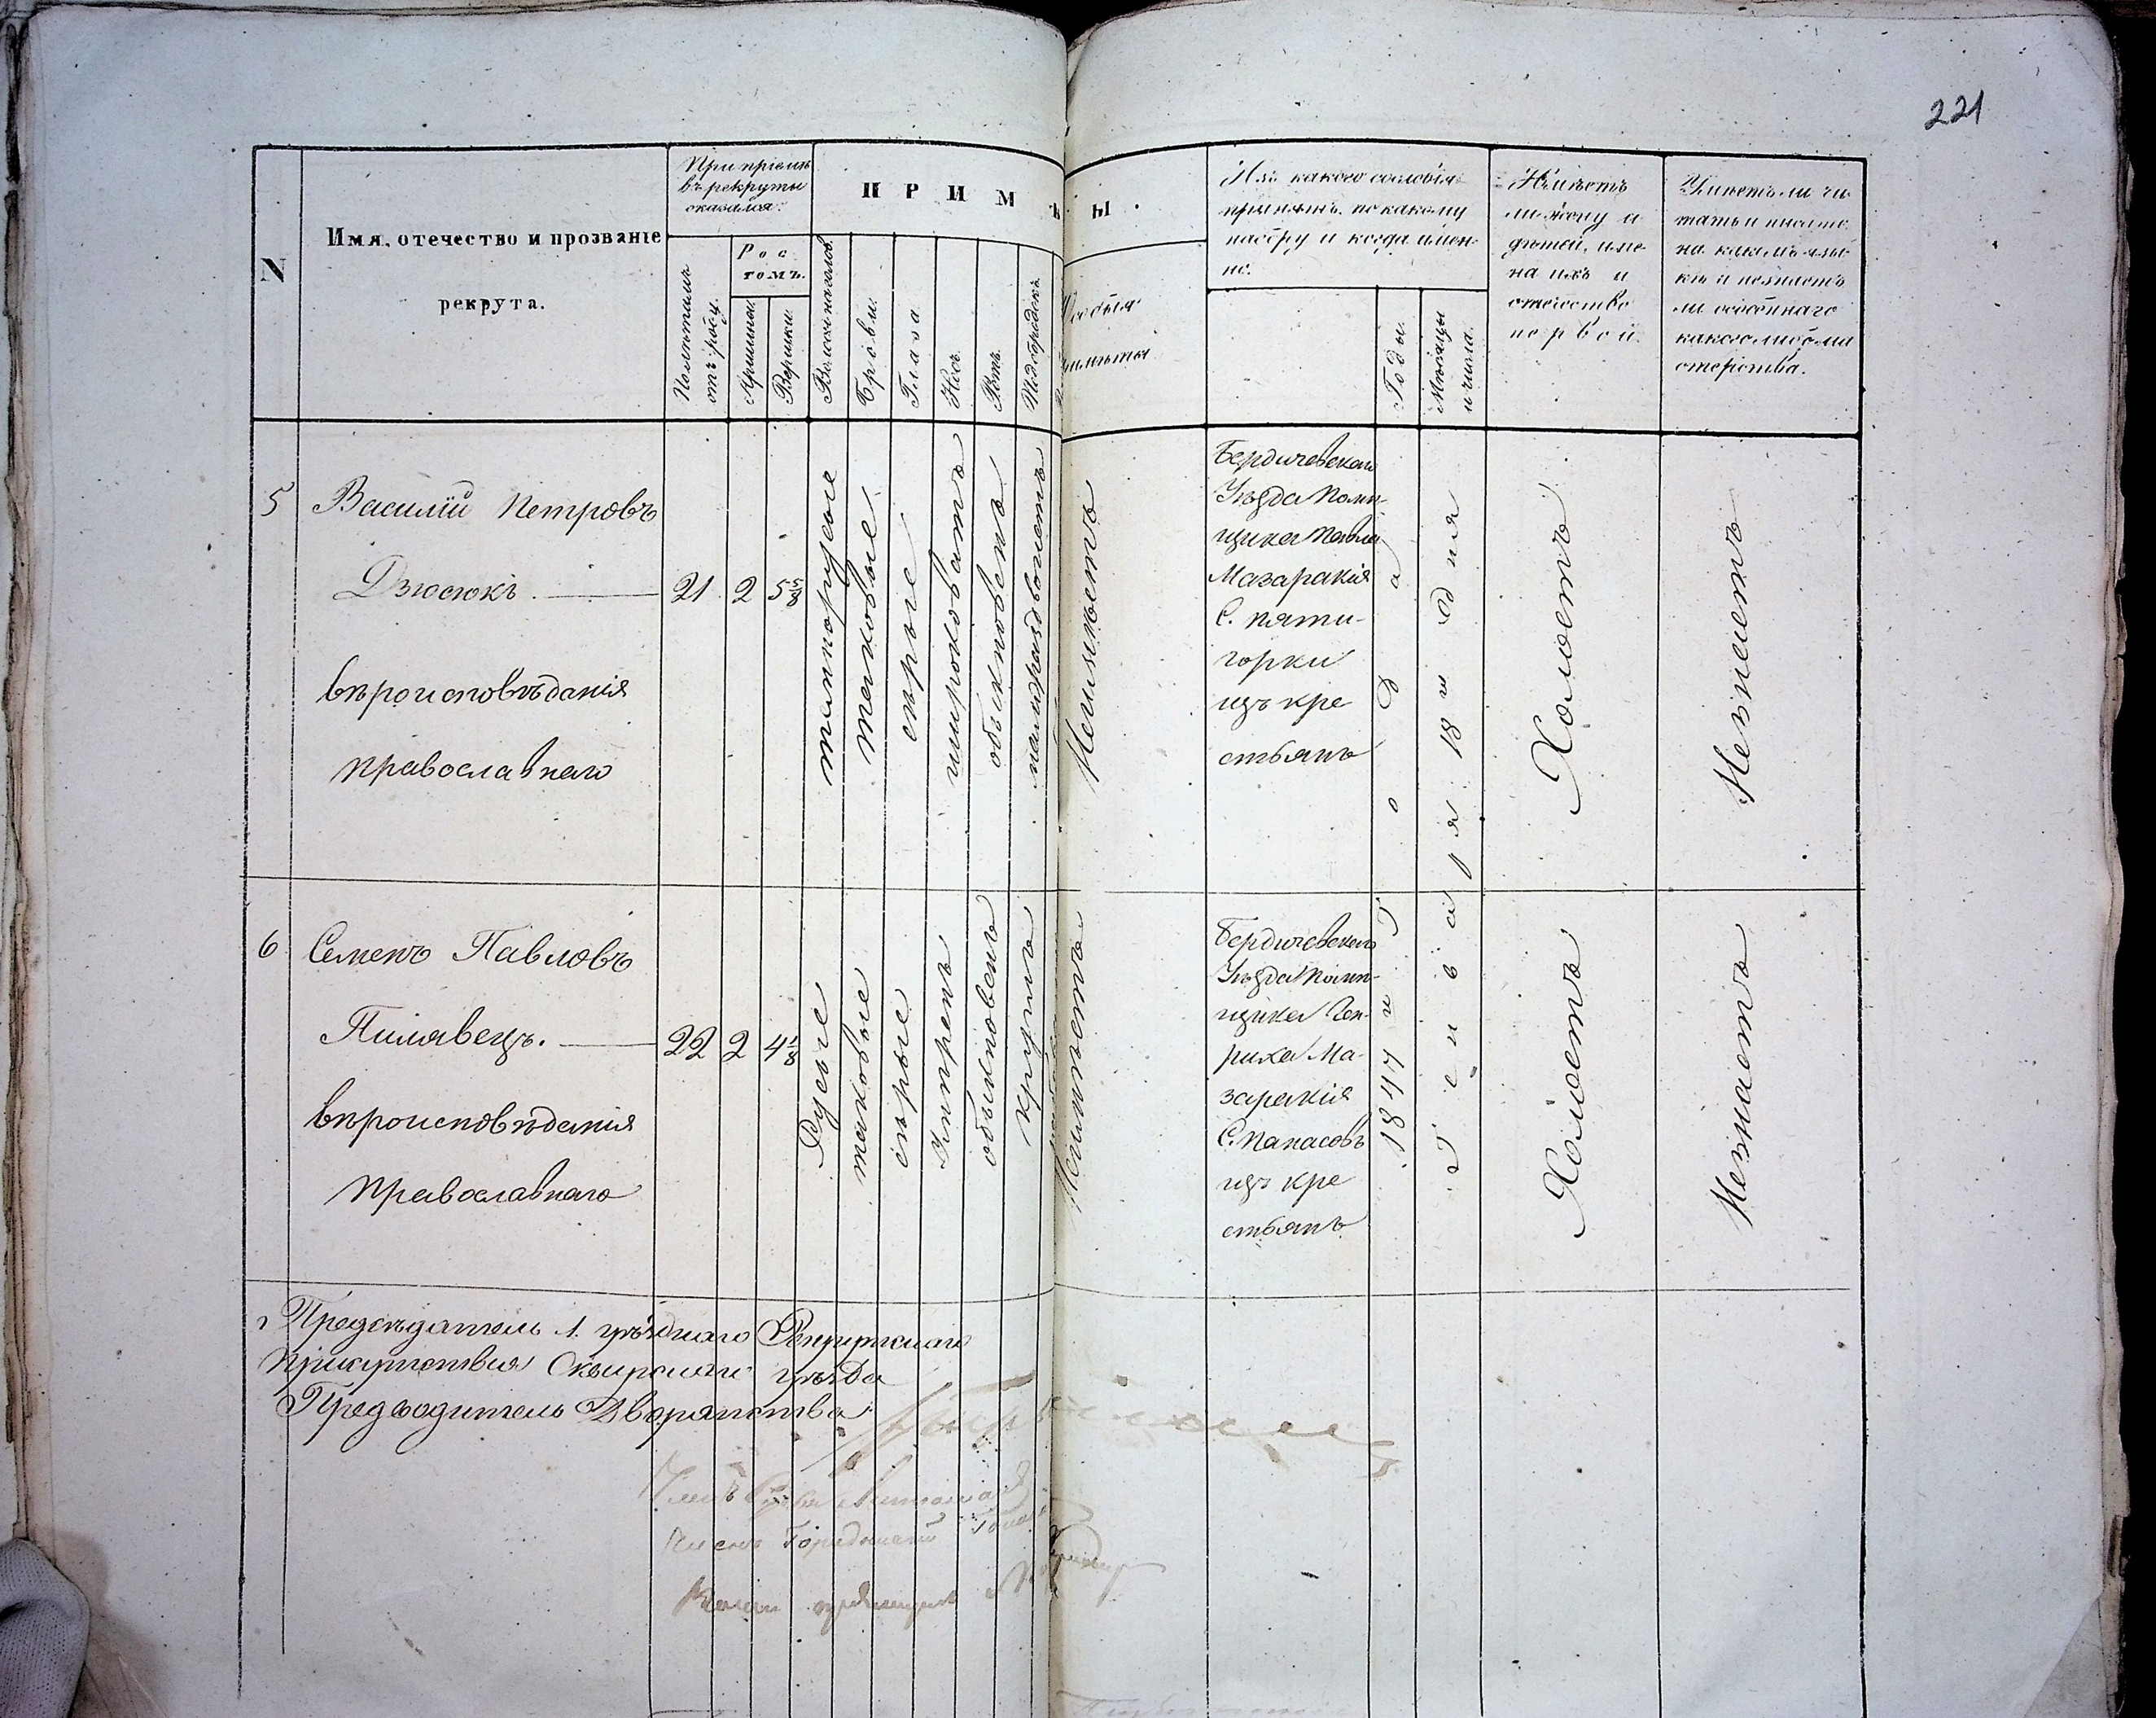 221
N
Имя, отечество и прозваніе
рекрута.
При пріемѣ
въ рекруты
оказался:
Полѣтамъ
отъ роду.
Ростомъ.
Аршины.
Вершки.
ПРИМѢТЫ.
Волосы на головѣ
Брови.
Глаза
Носъ.
Ротъ.
Подбородокъ
Особыя
примѣты
Изъ какого сословія
принятъ, по какому
набору и когда имен-
но.
Годы.
Мѣсяцы
и числа.
Имѣетъ
ли жену и
дѣтей, име-
на ихъ и
отечество
первой.
Умѣетъ ли чи-
тать и писать
на какомъ язы-
кѣ и незнаетъ
ли особеннаго
какого либо ма
стерства.
5
Василій Петровъ
Дзюсюкъ.
вѣроисповѣданія
православнаго
21
2
5 5/8
темнорусые
таковые
сѣрые
широковатъ
обыкновенъ
Неимѣетъ
Бердичевскаго
Уѣзда помѣ-
щика Павла
Мазаракія
С. Пяти-
горки
изъ кре
стьянъ
1847 Года
Генваря 18 дня
Холостъ
Незнаетъ
6
Семенъ Павловъ
Пилявецъ.
вѣроисповѣданія
православнаго
22
2
4 1/8
Русые
таковые
сѣрые
умѣренъ
обыкновенъ
кругло
Неимѣетъ
Бердичевскаго
Уѣзда помѣ-
щика Ген-
риха Ма-
заракія
С. Панасовъ
изъ кре
стьянъ
Холостъ
Незнаетъ
Предсѣдатель 1. уѣзднаго Рекрутскаго
Присутствія Сквирскаго уѣзда
Предводитель Дворянства
Членъ
Членъ Городничій